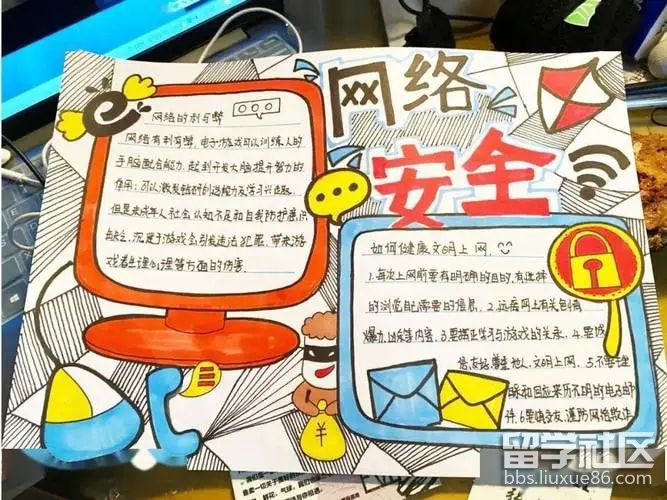 网络
安全
网络的利与弊
网络有利有弊,电子游戏可以训练人的
手脑配合能力,起到开发大脑提升智力的
作用;可以激发
但是未成年人社会认知不足和自我防护意识
缺乏,沉迷于游戏会引发违法犯罪,带来游
戏者生理心理等方面的伤害.
如何健康文明上网.
1.每次上网前要有明确的目的,有选择
的浏览自己需要的信息. 2.远离网上有关色情
暴力、等内容.3.要摆正学习与游戏的关系.4.要
尊重他人,文明上网.5.不要
和回应来历不明的电子邮
件.6.
¥
留学社区
bbs.liuxue86.com